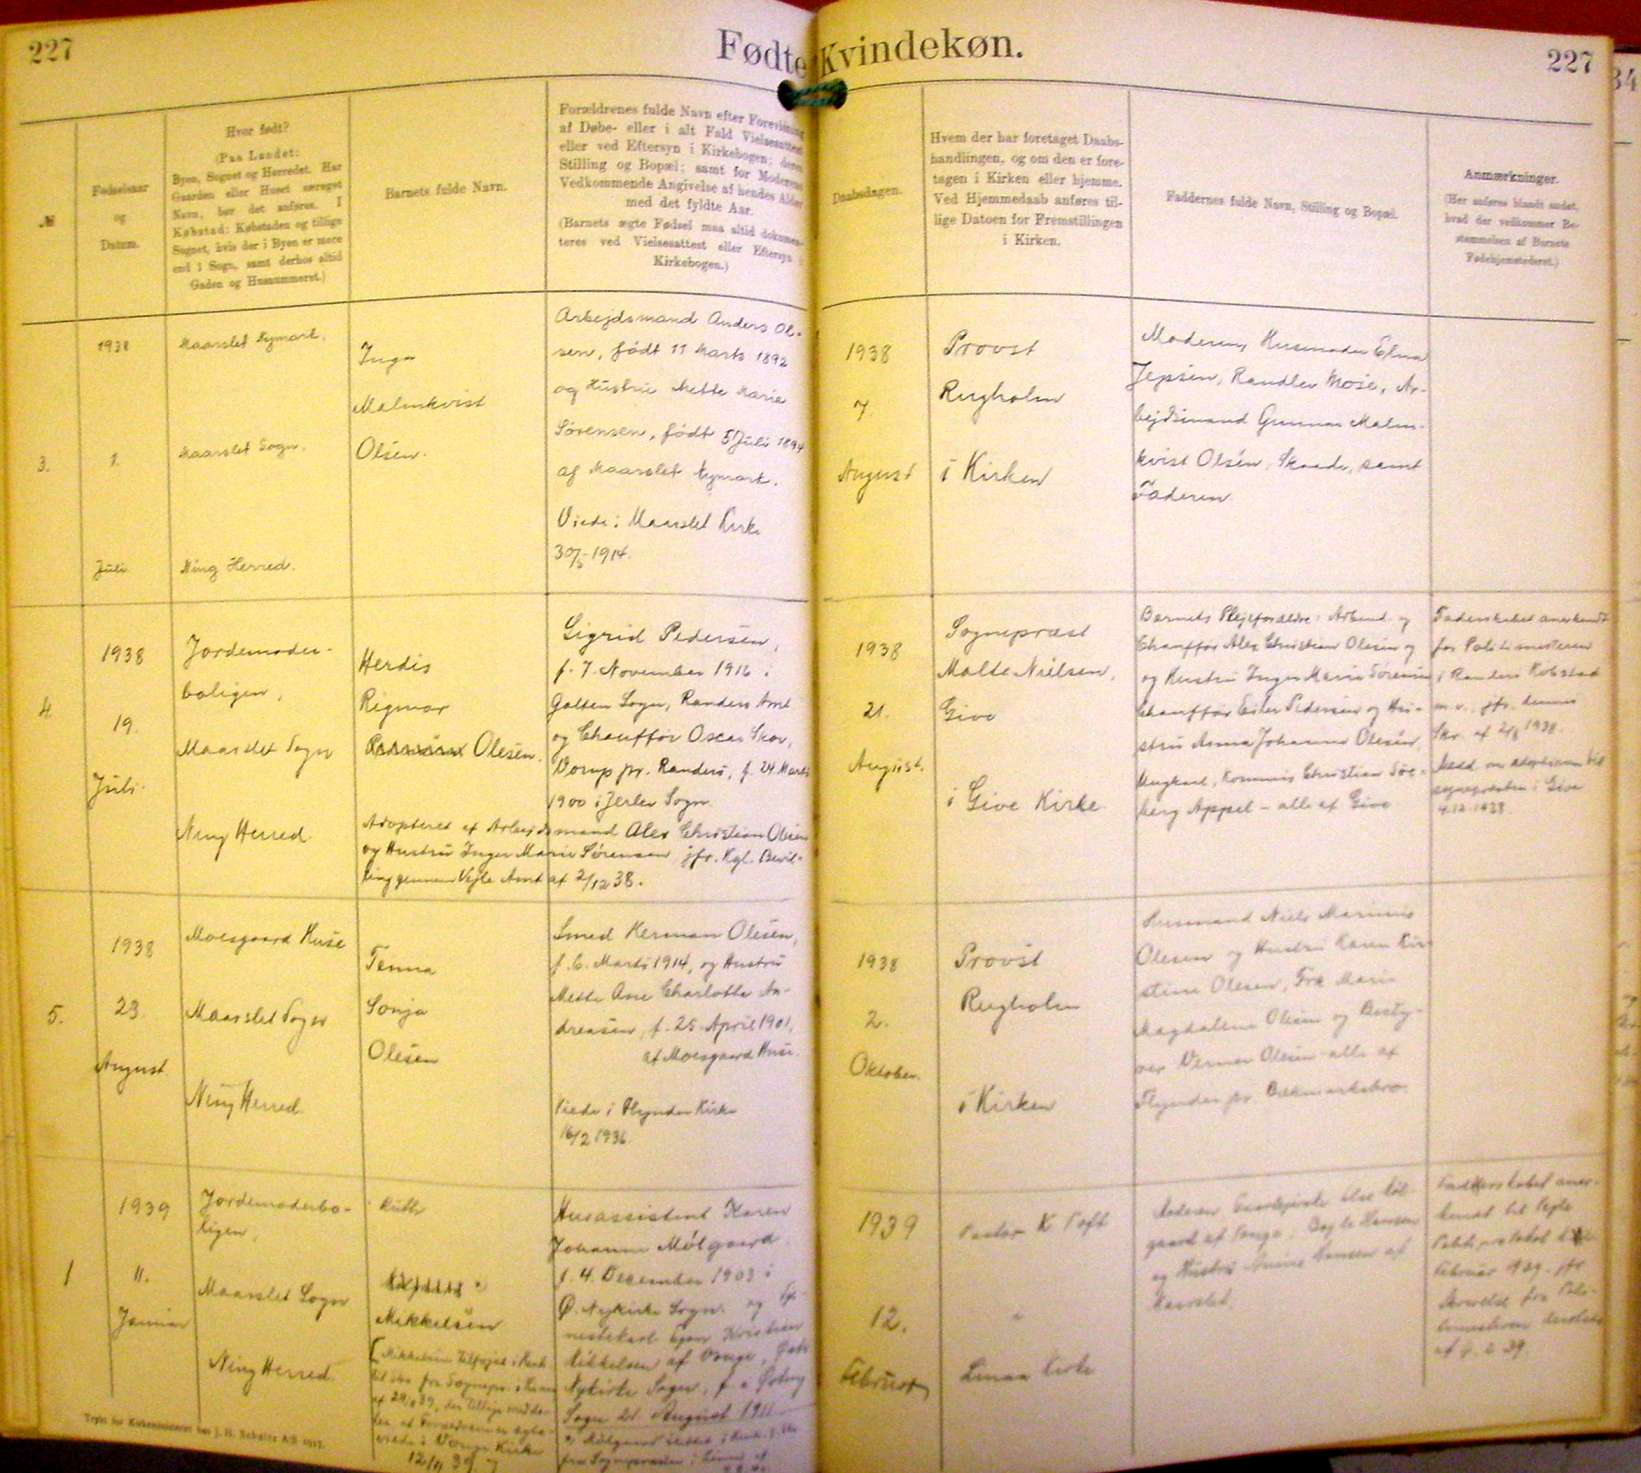 227
Fødte Kvindekøn.
227
34
№
Fødselsaar
og
Datum.
Hvor født?
(Paa Landet:
Byen, Sognet og Herredet. Har
Gaarden eller Huset særeget
Navn, bør det anføres. I
Købstad: Købstaden og tillige
Sognet, hvis der i Byen er mere
end 1 Sogn, samt derhos altid
Gaden og Husnummeret.)
Barnets fulde Navn.
Forældrenes fulde Navn efter Forevisning
af Døbe- eller i alt Fald Vielsesattest
eller ved Eftersyn i Kirkebogen; deres
Stilling og Bopæl; samt for Moderens
Vedkommende Angivelse af hendes Alder
med det fyldte Aar.
(Barnets ægte Fødsel maa altid dokumen-
teres ved Vielsesattest eller Eftersyn i
Kirkebogen.)
Daabsdagen.
Hvem der har foretaget Daabs-
handlingen, og om den er fore-
tagen i Kirken eller hjemme.
Ved Hjemmedaab anføres til-
lige Datoen for Fremstillingen
i Kirken.
Faddernes fulde Navn, Stilling og Bopæl.
Anmærkninger.
(Her anføres blandt andet,
hvad der vedkommer Be-
stemmelsen af Barnets
Fødehjemstederet.)
3.
1938
1.
Juli
Maarslet Nymark,
Maarslet Sogn.
Ning Herred.
Inga
Malmkvist
Olsen.
Arbejdsmand Anders Ol-
sen, født 11 Marts 1892
og Hustru Mette Marie
Sørensen, født 5 Juli 1894
af Maarslet Nymark.
Viede i Maarslet Kirke
30/5-1914.
1938
7.
August
Provst
Rugholm
i Kirken
Moderen, Husmoder Elna
Jepsen, Randlev Mose, Ar-
bejdsmand Gunnar Malm-
kvist Olsen, Skaade, samt
Faderen.
4.
1938
19.
Juli.
Jordemoder-
boligen,
Maarslet Sogn
Ning Herred.
Herdis
Rigmor
Olesen.
Sigrid Pedersen,
f. 7. November 1916 i
Galten Sogn, Randers Amt
og Chauffør Oscar Skov,
Vorup pr. Randers, f. 24 Marts
1900 i Jerlev Sogn.
Adopteret af Arbejdsmand Alex Christian Olesen
og Hustru Inger Marie Sørensen, jfr. Kgl. Bevil-
ling gennem Vejle Amt af 2/12 38.
1938
21.
August.
Sognepræst
Malte Nielsen,
Give
i Give Kirke
Barnets Plejeforældre: Arbmd. og
Chauffør Alex Christian Olesen og
og Hustru Inger Marie Sørensen
Chauffør Ejler Pedersen og Hu-
stru Anna Johanne Olesen,
Ungkarl, Kommis Christian
berg Appel - alle af Give
Faderskabet anerkendt
for Politimesteren
i Randers Købstad
m.v., jfr. dennes
Skr. af 2/8 1938.
Medd. om adoptionen til
sognepræsten i Give
4.12.1938.
5.
1938
23.
August
Moesgaard Huse
Maarslet Sogn
Ning Herred.
Tenna
Sonja
Olesen
Smed Herman Olesen,
f. 6. Marts 1914, og Hustru
Mette Ane Charlotte An-
dreasen, f. 25. April 1901,
af Moesgaard Huse.
Viede i Flynder Kirke
16/2 1936.
1938
2.
Oktober.
Provst
Rugholm
i Kirken
Husmand Niels Marinus
Olesen og Hustru Karen Kir-
stine Olesen, Frk Marie
Magdalene Olesen og Besty-
rer Verner Olesen - alle af
Flynder pr. Bækmarksbro.
1
1939
11.
Januar
Jordemoderbo-
ligen,
Maarslet Sogn
Ning Herred.
Ruth
Mikkelsen
12/11 39.
Husassistent Karen
Johanne Mølgaard
f. 4. December 1903 i
Ø. Nykirke Sogn. og Tje-
nestekarl Egon Kristian
Mikkelsen af Vonge, Øster
Nykirke Sogn, f. i Østery
Sogn 21 August 1911
1939
12.
Februar
Pastor K Toft
"
Linaa Kirke
Moderen,
gaard af Vonge,
og Hustru Hansen af
Maarslet.
Faderskabet aner-
kendt
Februar 1939. jfr
af 9. 2. 39.
Trykt for Kirkeministeriet hos J. H. Schultz A/S 1917.